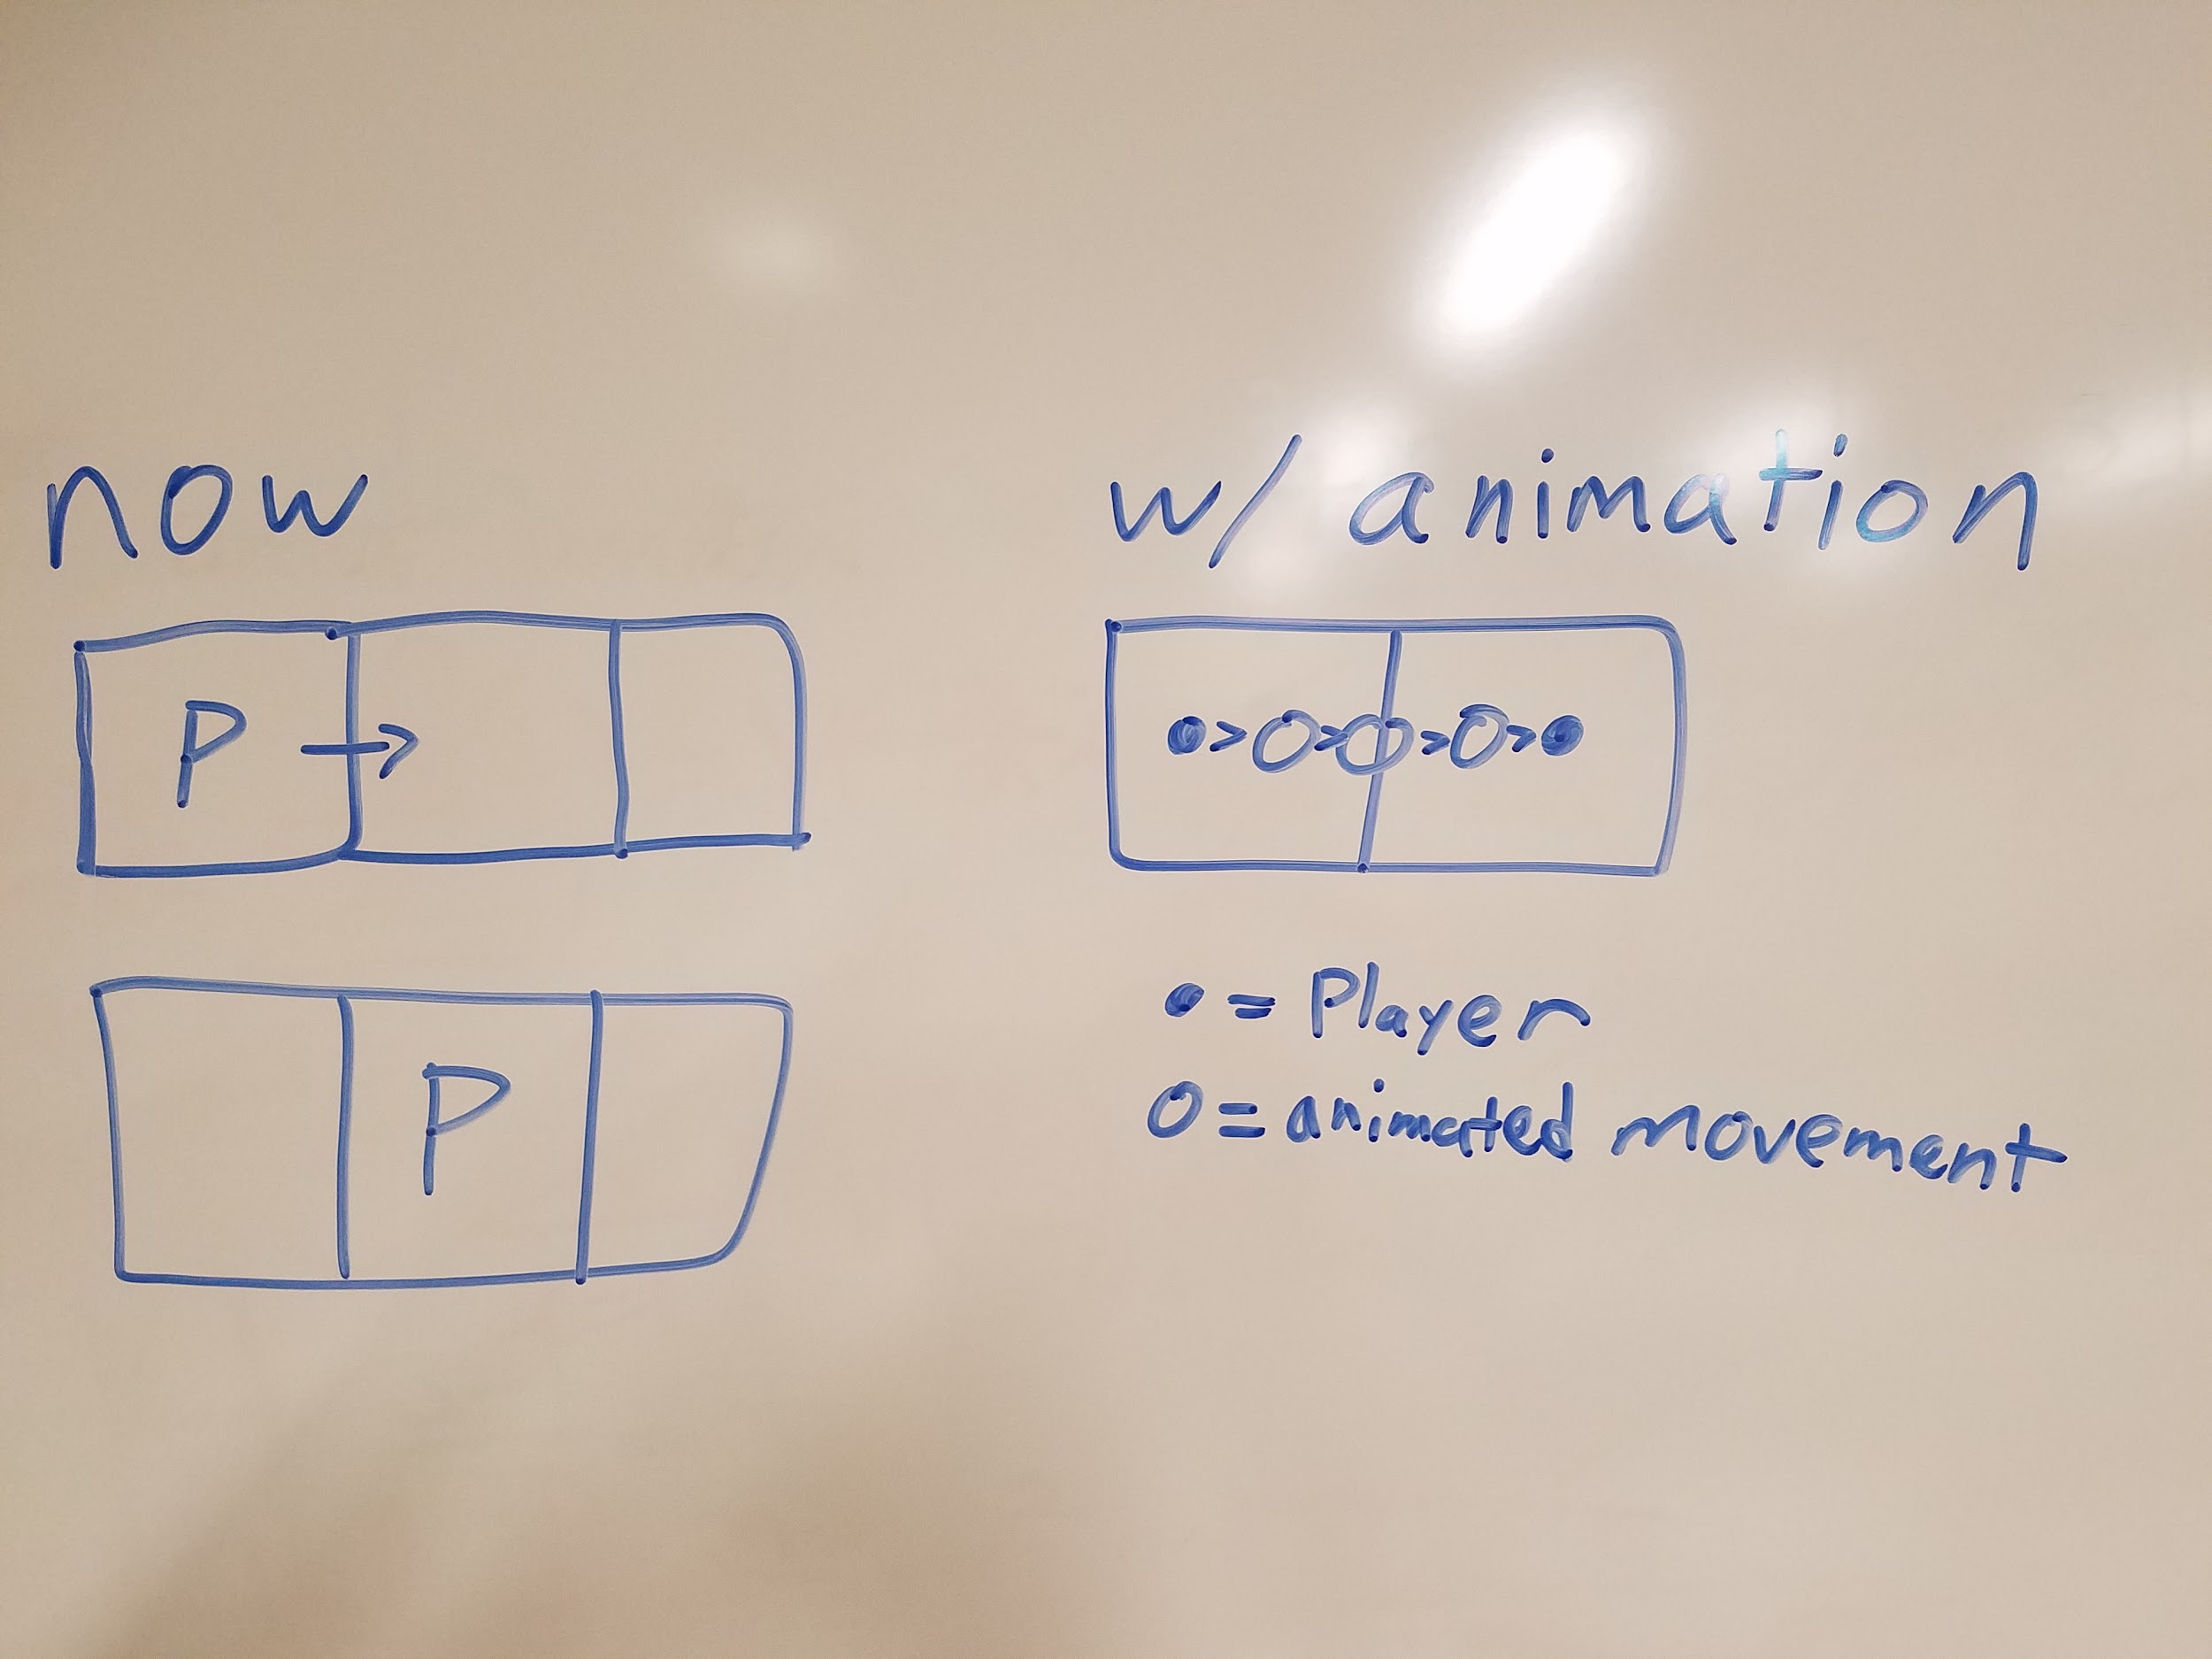 now
P →
P
w/ animation
●>O>O>O>●
● = Player
O = animated movement